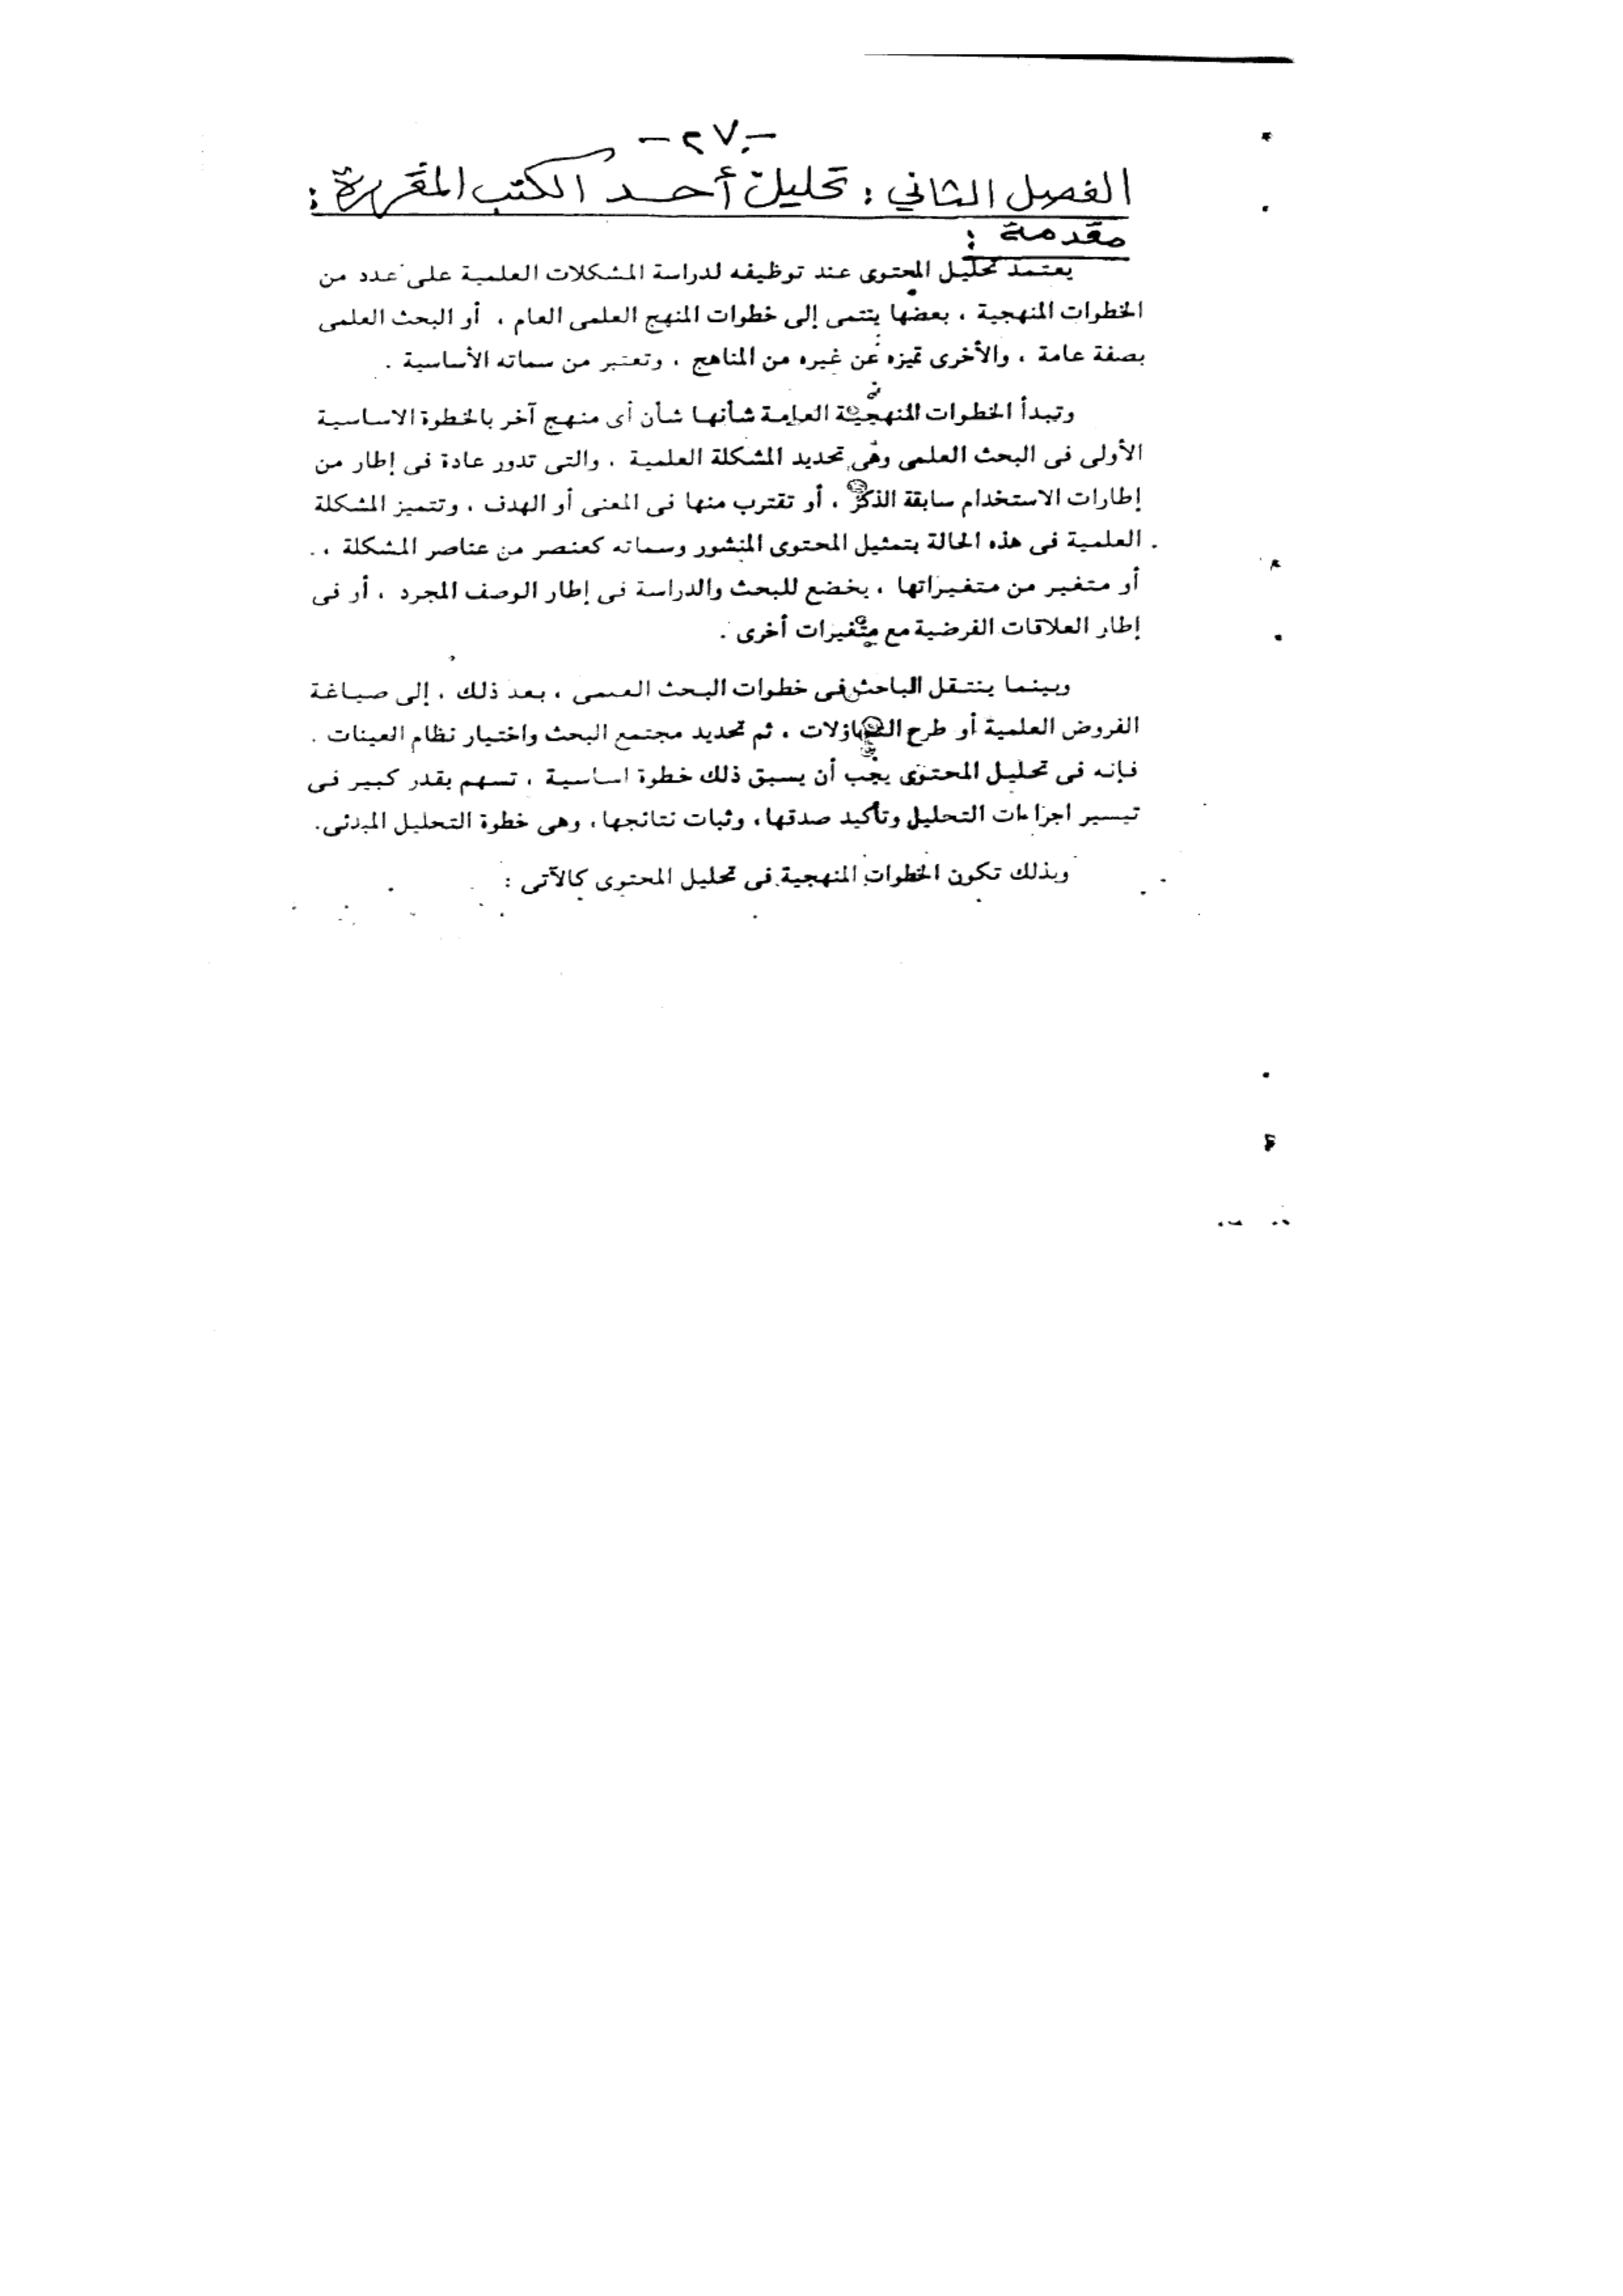 -٢٧-
الفصل الثاني : تحليل أحد الكتب المقررة :
مقدمة :
يعتمد تحليل المحتوى عند توظيفه لدراسة المشكلات العلمية على عدد من
الخطوات المنهجية ، بعضها يتتمى إلى خطوات المنهج العلمى العام ، أو البحث العلمى
بصفة عامة ، والأخرى تميزه عن غيره من المناهج ، وتعتبر من سماته الأساسية .
وتبدأ الخطوات المنهجية العامة شأنها شأن أى منهج آخر بالخطوة الاساسية
الأولى فى البحث العلمى وهى تحديد المشكلة العلمية ، والتى تدور عادة فى إطار من
إطارات الاستخدام سابقة الذكر ، أو تقترب منها فى المعنى أو الهدف ، وتتميز المشكلة
العلمية فى هذه الحالة بتمثيل المحتوى المنشور وسماته كعنصر من عناصر المشكلة ،
أو متغير من متغيراتها ، يخضع للبحث والدراسة فى إطار الوصف المجرد ، أو فى
إطار العلاقات الفرضية مع متغيرات أخرى .
وبينما ينتقل الباحث فى خطوات البحث العلمى ، بعد ذلك ، إلى صياغة
الفروض العلمية أو طرح التساؤلات ، ثم تحديد مجتمع البحث واختيار نظام العينات .
فإنه فى تحليل المحتوى يجب أن يسبق ذلك خطوة اساسية ، تسهم بقدر كبير فى
تيسير اجراءات التحليل وتأكيد صدقها ، وثبات نتائجها ، وهى خطوة التحليل المبدئى .
وبذلك تكون الخطوات المنهجية فى تحليل المحتوى كالآتى :